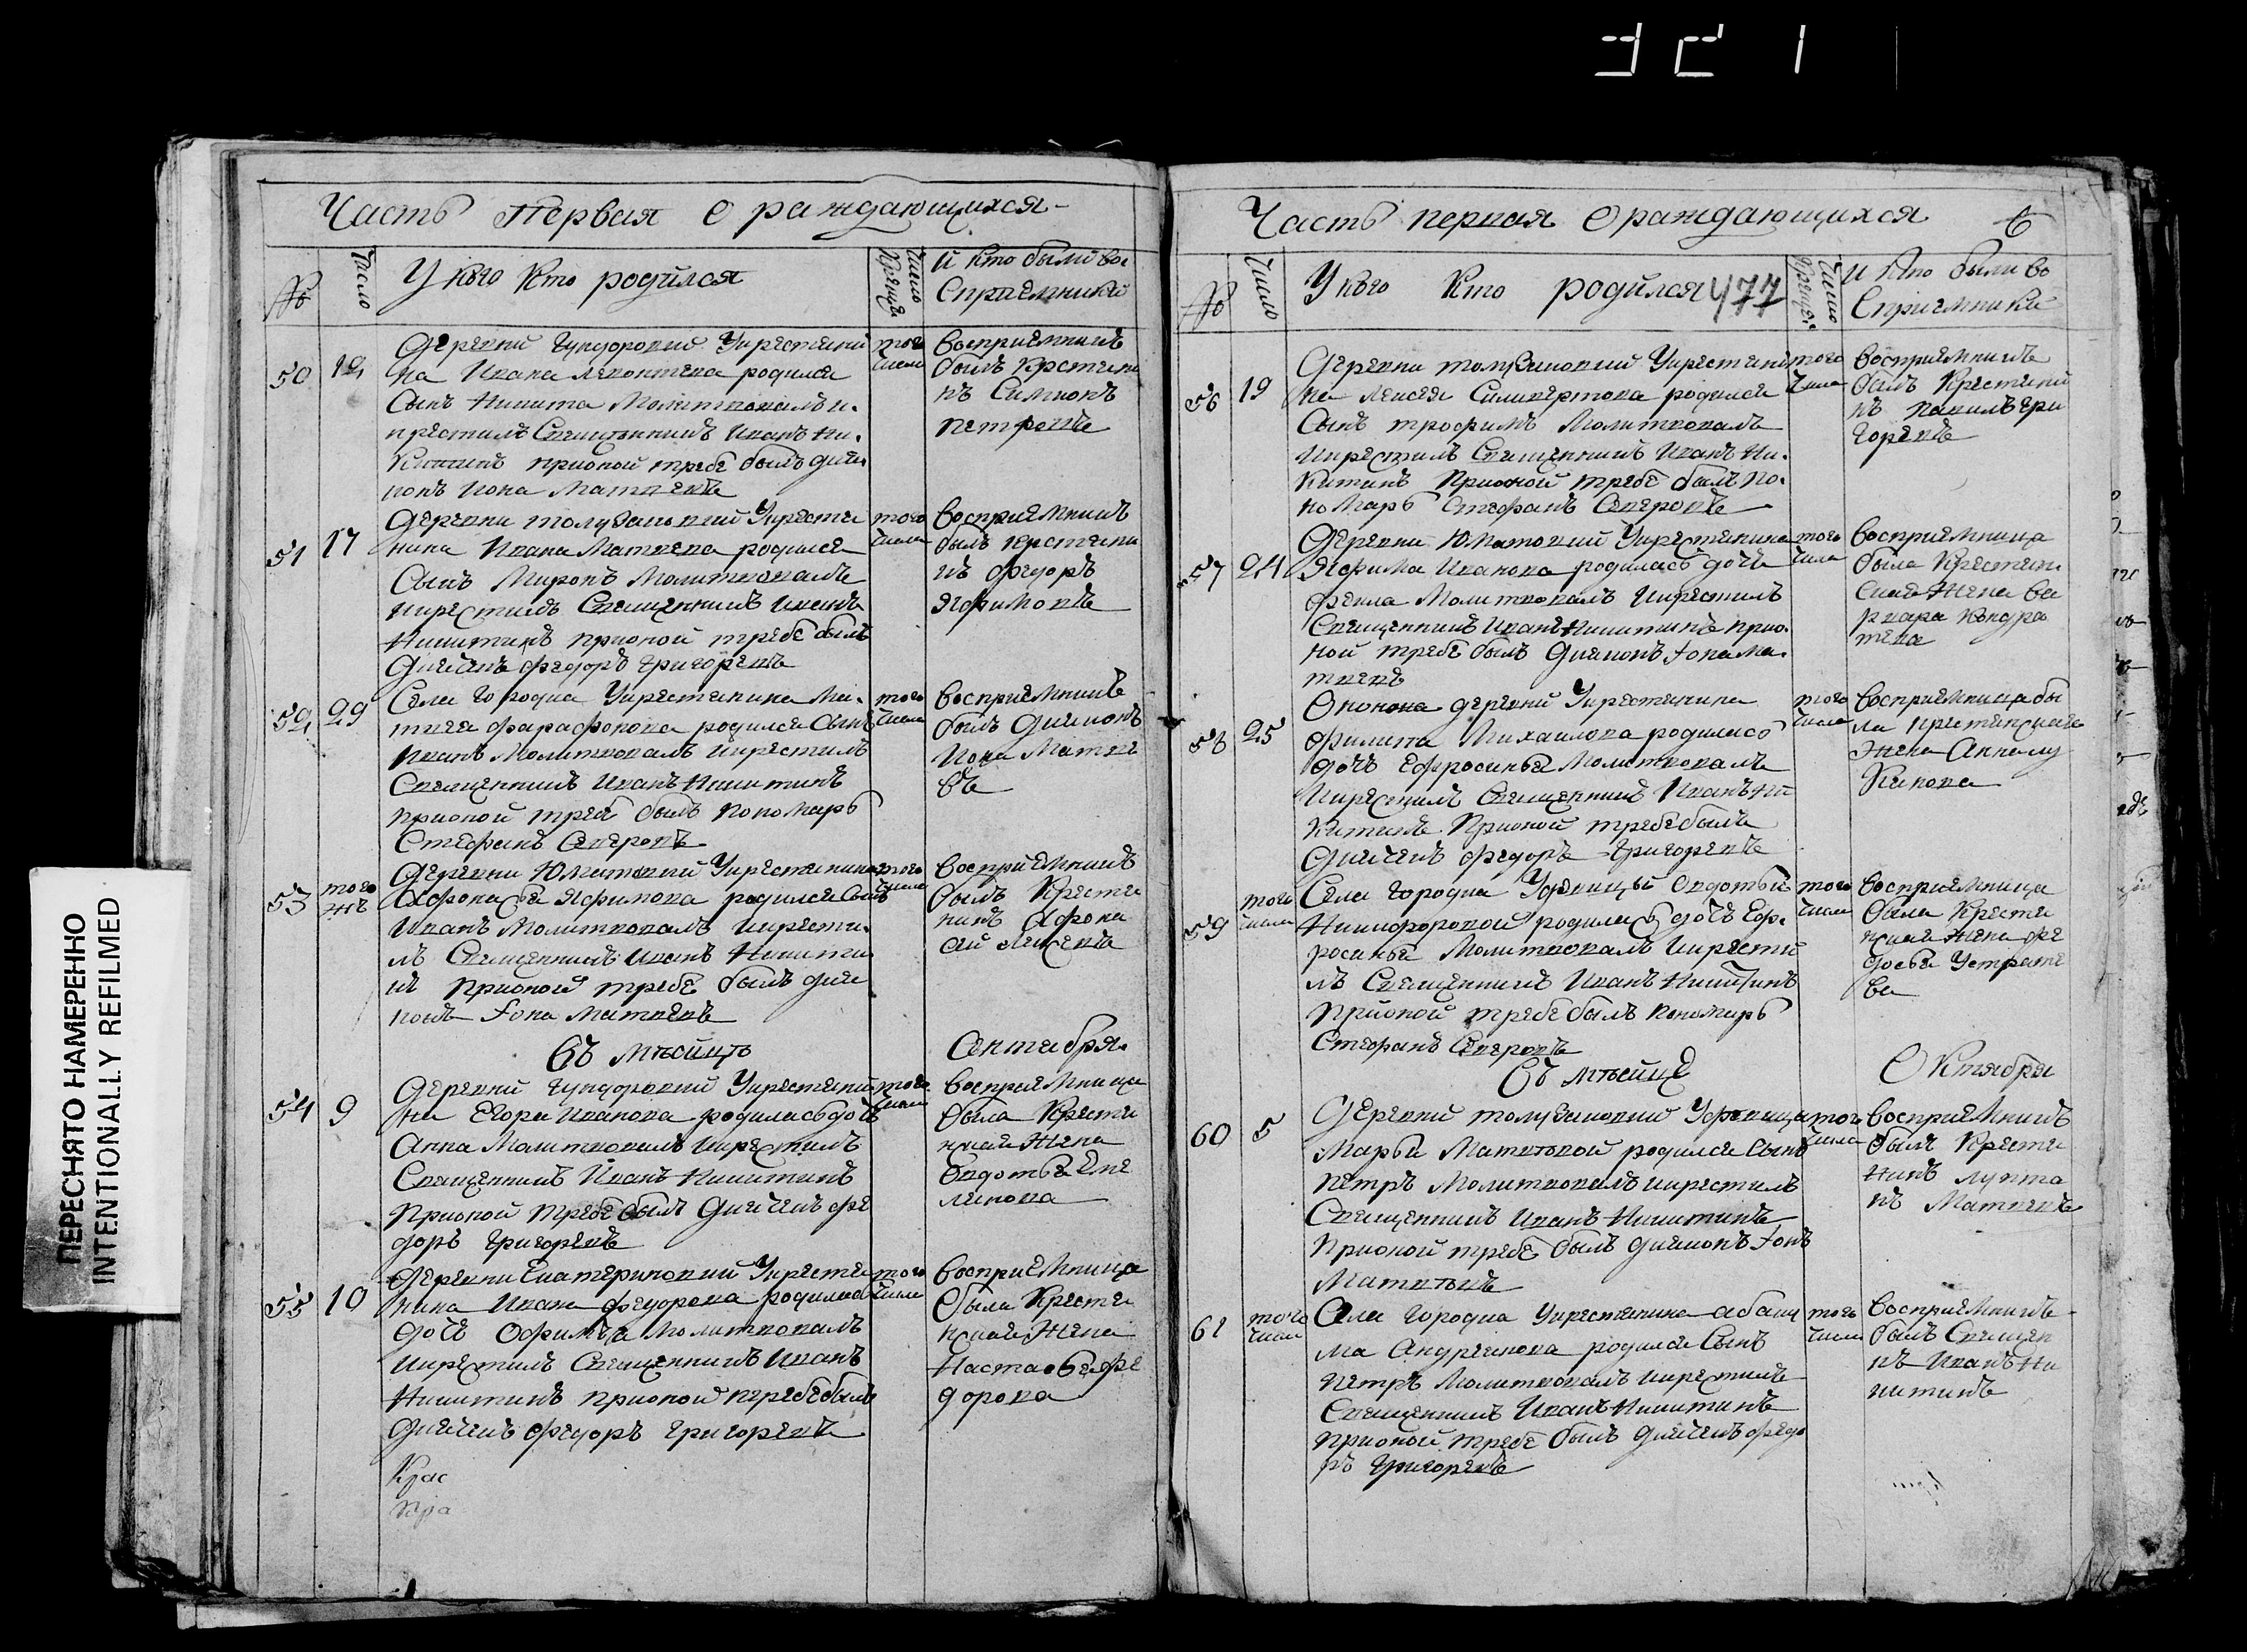 Часть первая о раждающихся
№
Число
У кого кто родился
Число Крещен
И кто были вос
Сприемники
50
12
Деревни Гундоровки У крестьяни
на Ивана Леонтева родился
Сынъ Никита Молитвовалъ и
крестилъ Священникъ Иванъ Ни
китинъ при оной требе былъ дия
конъ Иона Матвеевъ
того числа
Восприемникъ
былъ Крстьяни
нъ Симионъ
Петровъ
51
17
Деревни У крестья
нина Ивана Матвева родился
Сынъ Миронъ Молитвовалъ
и крестилъ Священникъ Иванъ
Никитинъ при оной требе былъ
Диячекъ Федоръ Григоревъ
того числа
Восприемникъ
былъ Крстьяни
нъ Федоръ
Яфимовъ
52
29
Села Городка У крестьянина Ма
твея Фарафонова родился Сынъ
Иванъ Молитвовалъ и крестилъ
Священникъ Иванъ Никитинъ
при оной треб былъ пономарь
Стефанъ Северовъ
того числа
Восприемникъ
былъ Дияконъ
Иона Матве
въ
53
того жъ
Деревни Юматовки У крестьянина
Афонасья Яфимова родился Сынъ
Иванъ Молитвовалъ и крести
лъ Священникъ Иванъ Никити
нъ при оной требе былъ дия
конъ Iона Матвеевъ
того числа
Восприемникъ
былъ Крестья
нинъ Афона
сий Алексевъ
Въ месяцъ Сентября
54
9
Деревни Гундоровки У крестьяни
на Егора Иванова родилась дочь
Анна Молитвовалъ и крестилъ
Священникъ Иванъ Никитинъ
При оной требе былъ Диячекъ Фе
доръ Григоревъ
того числа
Восприемница
была Крестья
нская Жена
Овдотья Еме
лянова
55
10
Деревни Екатериновки У крестья
нина Ивана Федорова родилась
дочь Офимья Молитвовалъ
и крестилъ Священникъ Иванъ
Никитинъ при оной требе былъ
Диячекъ Федоръ Григоревъ
того числа
Восприемница
была Крестья
нская Жена
Настасья Фе
дорова
Крас
Кра
Часть первая о раждающихся
6
№
Число
У кого кто родился
477
Число Крещен
И кто были во
Сприемники
56
19
Деревни У крестьяни
на Алексея Силивертова родился
Сынъ трофимъ Молитвовалъ
и крестилъ Священникъ Иванъ Ни
китинъ При оной требе былъ по
номарь Стефанъ Северовъ
того числа
Восприемникъ
былъ Крестьяни
нъ Павилъ Гри
горевъ
57
24
Деревни Юматовки У крестьянина
Яфима Иванова родилась дочь
Фекла Молитвовалъ и крестилъ
Священникъ Иванъ Никитинъ при о
ной требе былъ Дияконъ Iона Ма
твеевъ
того числа
Восприемница
была Крестьян
ская Жена Ва
рвара Кондра
тева
58
25
Оной деревни У крестьянина
Филипа Михаилова родилась
дочь Ефросинья Молитвовалъ
и крестилъ Священникъ Иванъ Ни
китинъ При оной требе былъ
Диячекъ Федоръ Григоревъ
того числа
Восприемница бы
ла крестьянская
Жена Анна Лу
кинова
59
того числа
Села Городка У вдовицы Овдотьи
Никифоровой родилась дочь Еф
росинья Молитвовалъ и крести
лъ Священникъ Иванъ Никитинъ
При оной требе былъ пономарь
Стефанъ Северовъ
того числа
Восприемница
была Крестья
нская Жена Фе
досья Устрате
ва
Въ месяце Октября
60
5
Деревни У вдовицы
Марьи Матвевой родился Сынъ
Петръ Молитвовалъ и крестилъ
Священникъ Иванъ Никитинъ
При оной требе былъ дияконъ Iонъ
Матвевъ
того числа
Восприемникъ
былъ Крестья
нинъ Лупта
нъ Матвевъ
61
того числа
Села Городка У крестьянина Абаку
ма Андреянова родился Сынъ
Петръ Молитвовалъ и крестилъ
Священникъ Иванъ Никитинъ
При оной требе былъ Диячекъ Федо
ръ Григоревъ
того числа
Восприемникъ
былъ Священ
нкъ Иванъ Ни
китинъ
ПЕРЕСНЯТО НАМЕРЕННО
INTENTIONALLY REFILMED